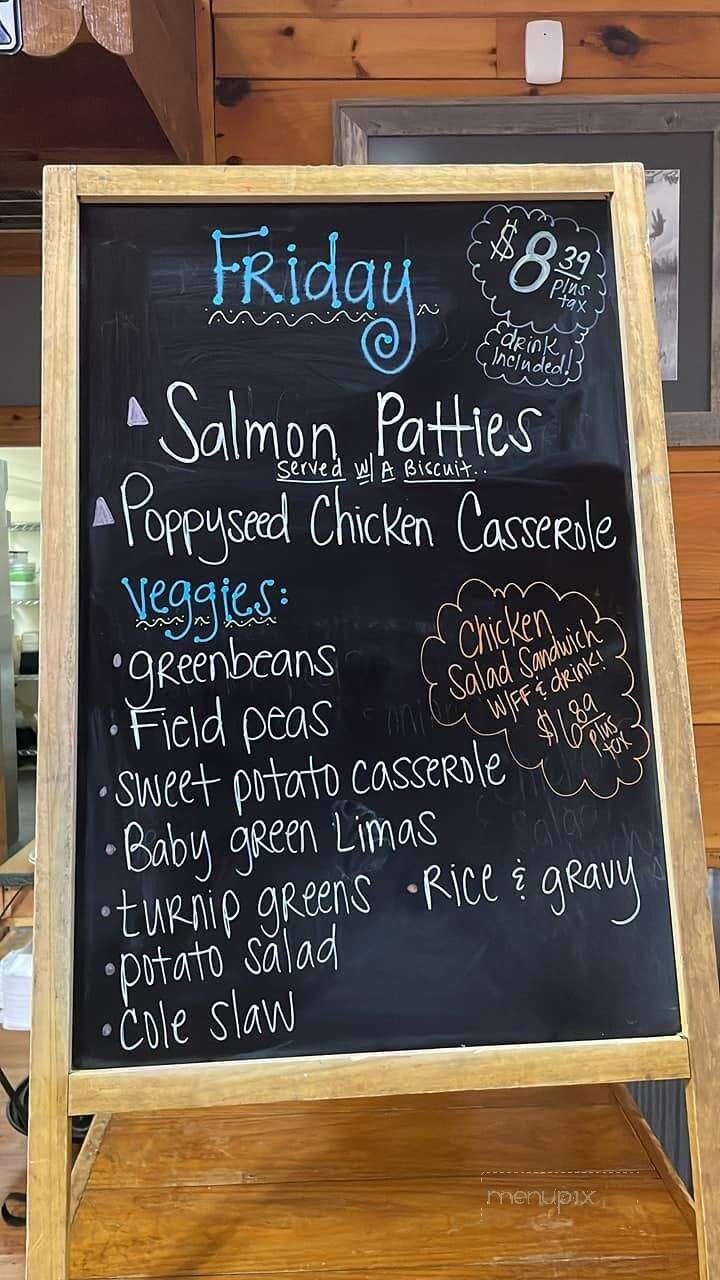 Friday
$8.39
plus
tax
drink
included!
Salmon Patties
Served w/ A Biscuit..
Poppyseed Chicken Casserole
veggies:
Chicken
Salad Sandwich
W/FF & drink!
$6.89
plus
tax
• greenbeans
• Field peas
• sweet potato casserole
• Baby green Limas
• turnip greens • Rice & gravy
• potato salad
• Cole slaw
menupix